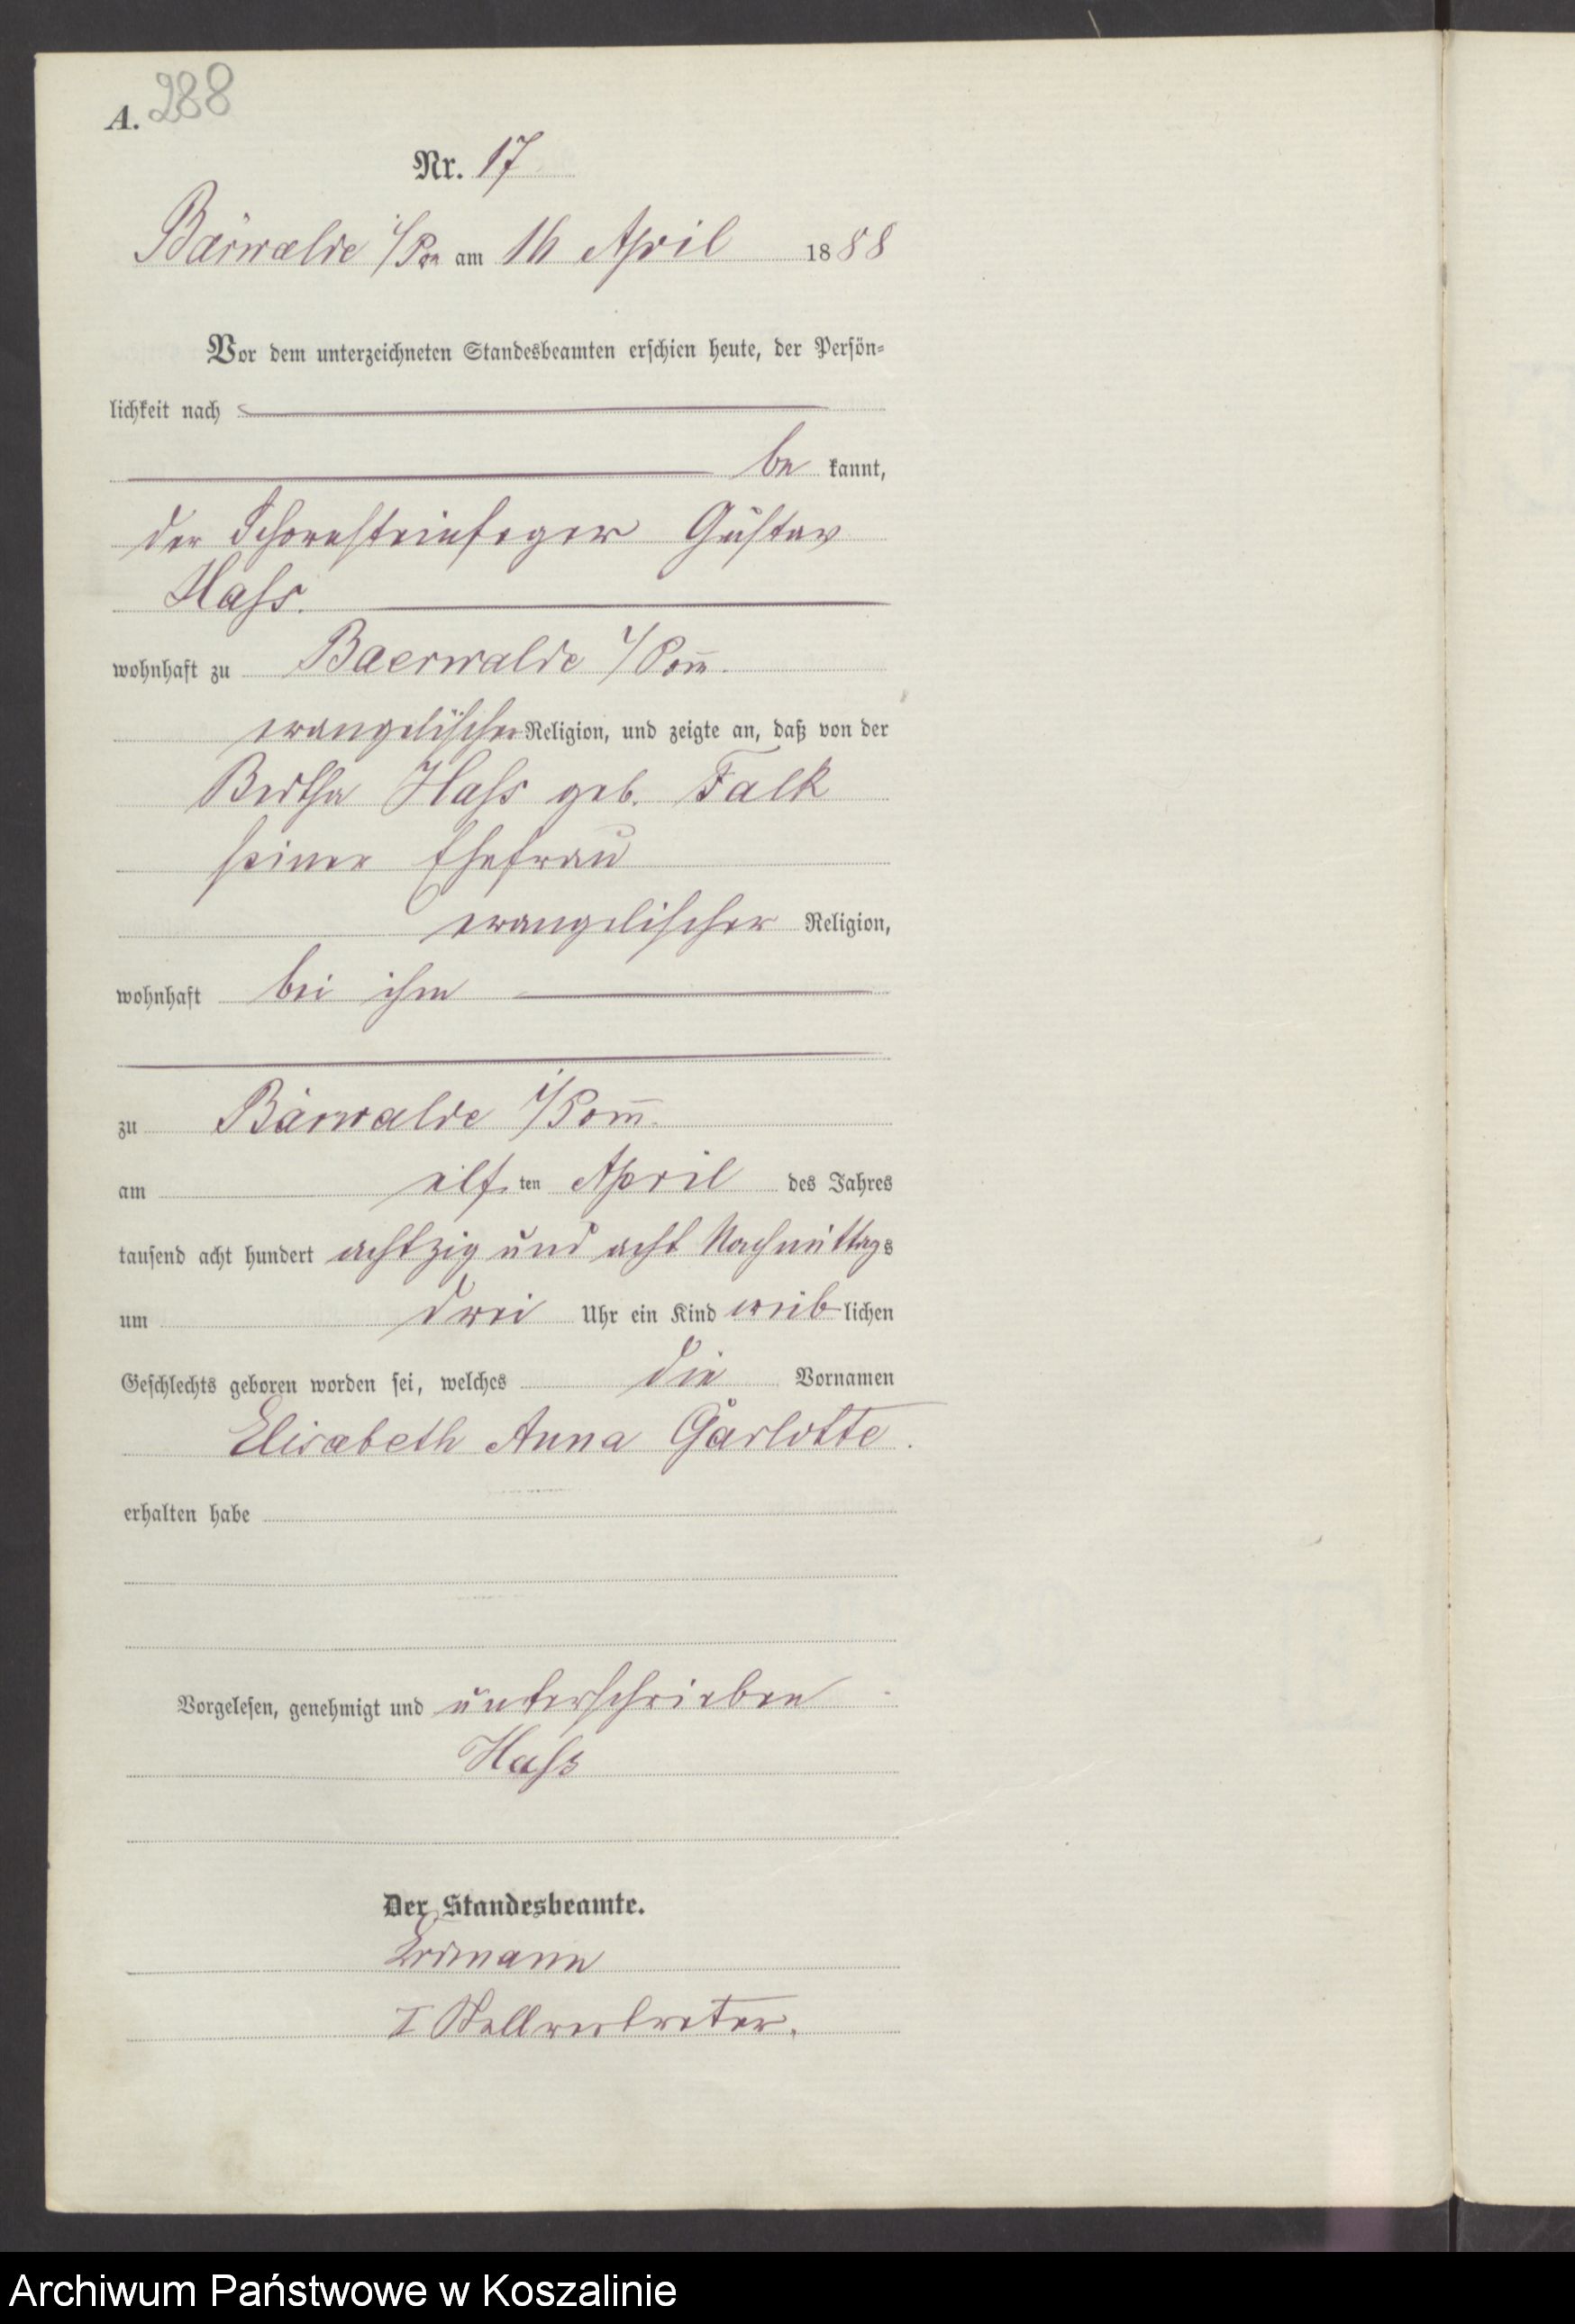 A. 288
Nr. 17
Bärwalde i/Pom am 16 April 1888
Vor dem unterzeichneten Standesbeamten erschien heute, der Persön-
lichkeit nach
be kannt,
der Schornsteinfeger Gustav
Hass.
wohnhaft zu Baerwalde i/Pom̄.
evangelischer Religion, und zeigte an, daß von der
Bertha Hass geb. Falk
seiner Ehefrau
evangelischer Religion,
wohnhaft bei ihm
zu Bärwalde i/Pom̄.
am elf ten April des Jahres
tausend acht hundert achtzig und acht Nachmittags
um drei Uhr ein Kind weib lichen
Geschlechts geboren worden sei, welches die Vornamen
Elisabeth Anna Garlotte.
erhalten habe
Vorgelesen, genehmigt und unterschrieben
Hass
Der Standesbeamte.
Erdmann
I Stellvertreter.
Archiwum Państwowe w Koszalinie